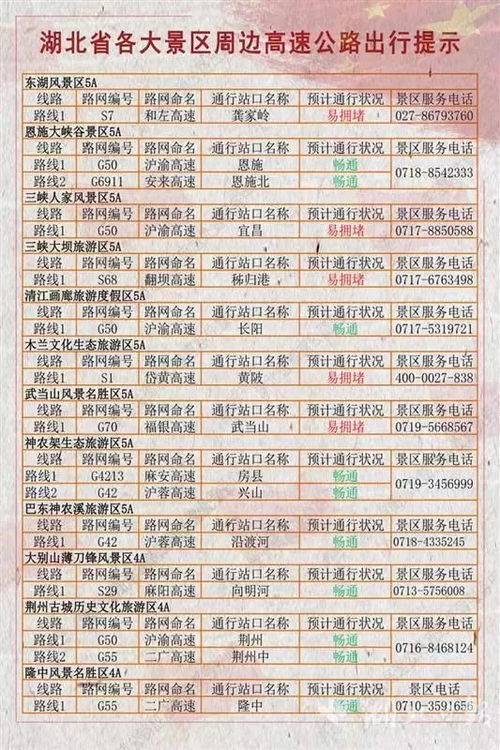 湖北省各大景区周边高速公路出行提示
东湖风景区5A
线路 路网编号 路网命名 通行站口名称 预计通行状况 景区服务电话
路线1 S7 和左高速 龚家岭 易拥堵 027-86793760
恩施大峡谷景区5A
线路 路网编号 路网命名 通行站口名称 预计通行状况 景区服务电话
路线1 G50 沪渝高速 恩施 畅通 0718-8542333
路线2 G6911 安来高速 恩施北 畅通
三峡人家风景区5A
线路 路网编号 路网命名 通行站口名称 预计通行状况 景区服务电话
路线1 G50 沪渝高速 宜昌 易拥堵 0717-8850588
三峡大坝旅游区5A
线路 路网编号 路网命名 通行站口名称 预计通行状况 景区服务电话
路线1 S68 翻坝高速 秭归港 易拥堵 0717-6763498
清江画廊旅游度假区5A
线路 路网编号 路网命名 通行站口名称 预计通行状况 景区服务电话
路线1 G50 沪渝高速 长阳 畅通 0717-5319721
木兰文化生态旅游区5A
线路 路网编号 路网命名 通行站口名称 预计通行状况 景区服务电话
路线1 S1 岱黄高速 黄陂 易拥堵 400-0027-838
武当山风景名胜区5A
线路 路网编号 路网命名 通行站口名称 预计通行状况 景区服务电话
路线1 G70 福银高速 武当山 易拥堵 0719-5668567
神农架生态旅游区5A
线路 路网编号 路网命名 通行站口名称 预计通行状况 景区服务电话
路线1 G4213 麻安高速 房县 畅通 0719-3456999
路线2 G42 沪蓉高速 兴山 畅通
巴东神农溪旅游区5A
线路 路网编号 路网命名 通行站口名称 预计通行状况 景区服务电话
路线1 G42 沪蓉高速 沿渡河 畅通 0718-4335245
大别山薄刀锋风景区4A
线路 路网编号 路网命名 通行站口名称 预计通行状况 景区服务电话
路线1 S29 麻阳高速 向明河 畅通 0713-5756008
荆州古城历史文化旅游区4A
线路 路网编号 路网命名 通行站口名称 预计通行状况 景区服务电话
路线1 G50 沪渝高速 荆州 畅通 0716-8468124
路线2 G55 二广高速 荆州中 畅通
隆中风景名胜区4A
线路 路网编号 路网命名 通行站口名称 预计通行状况 景区电话
路线1 G55 二广高速 隆中 畅通 0710-3591656